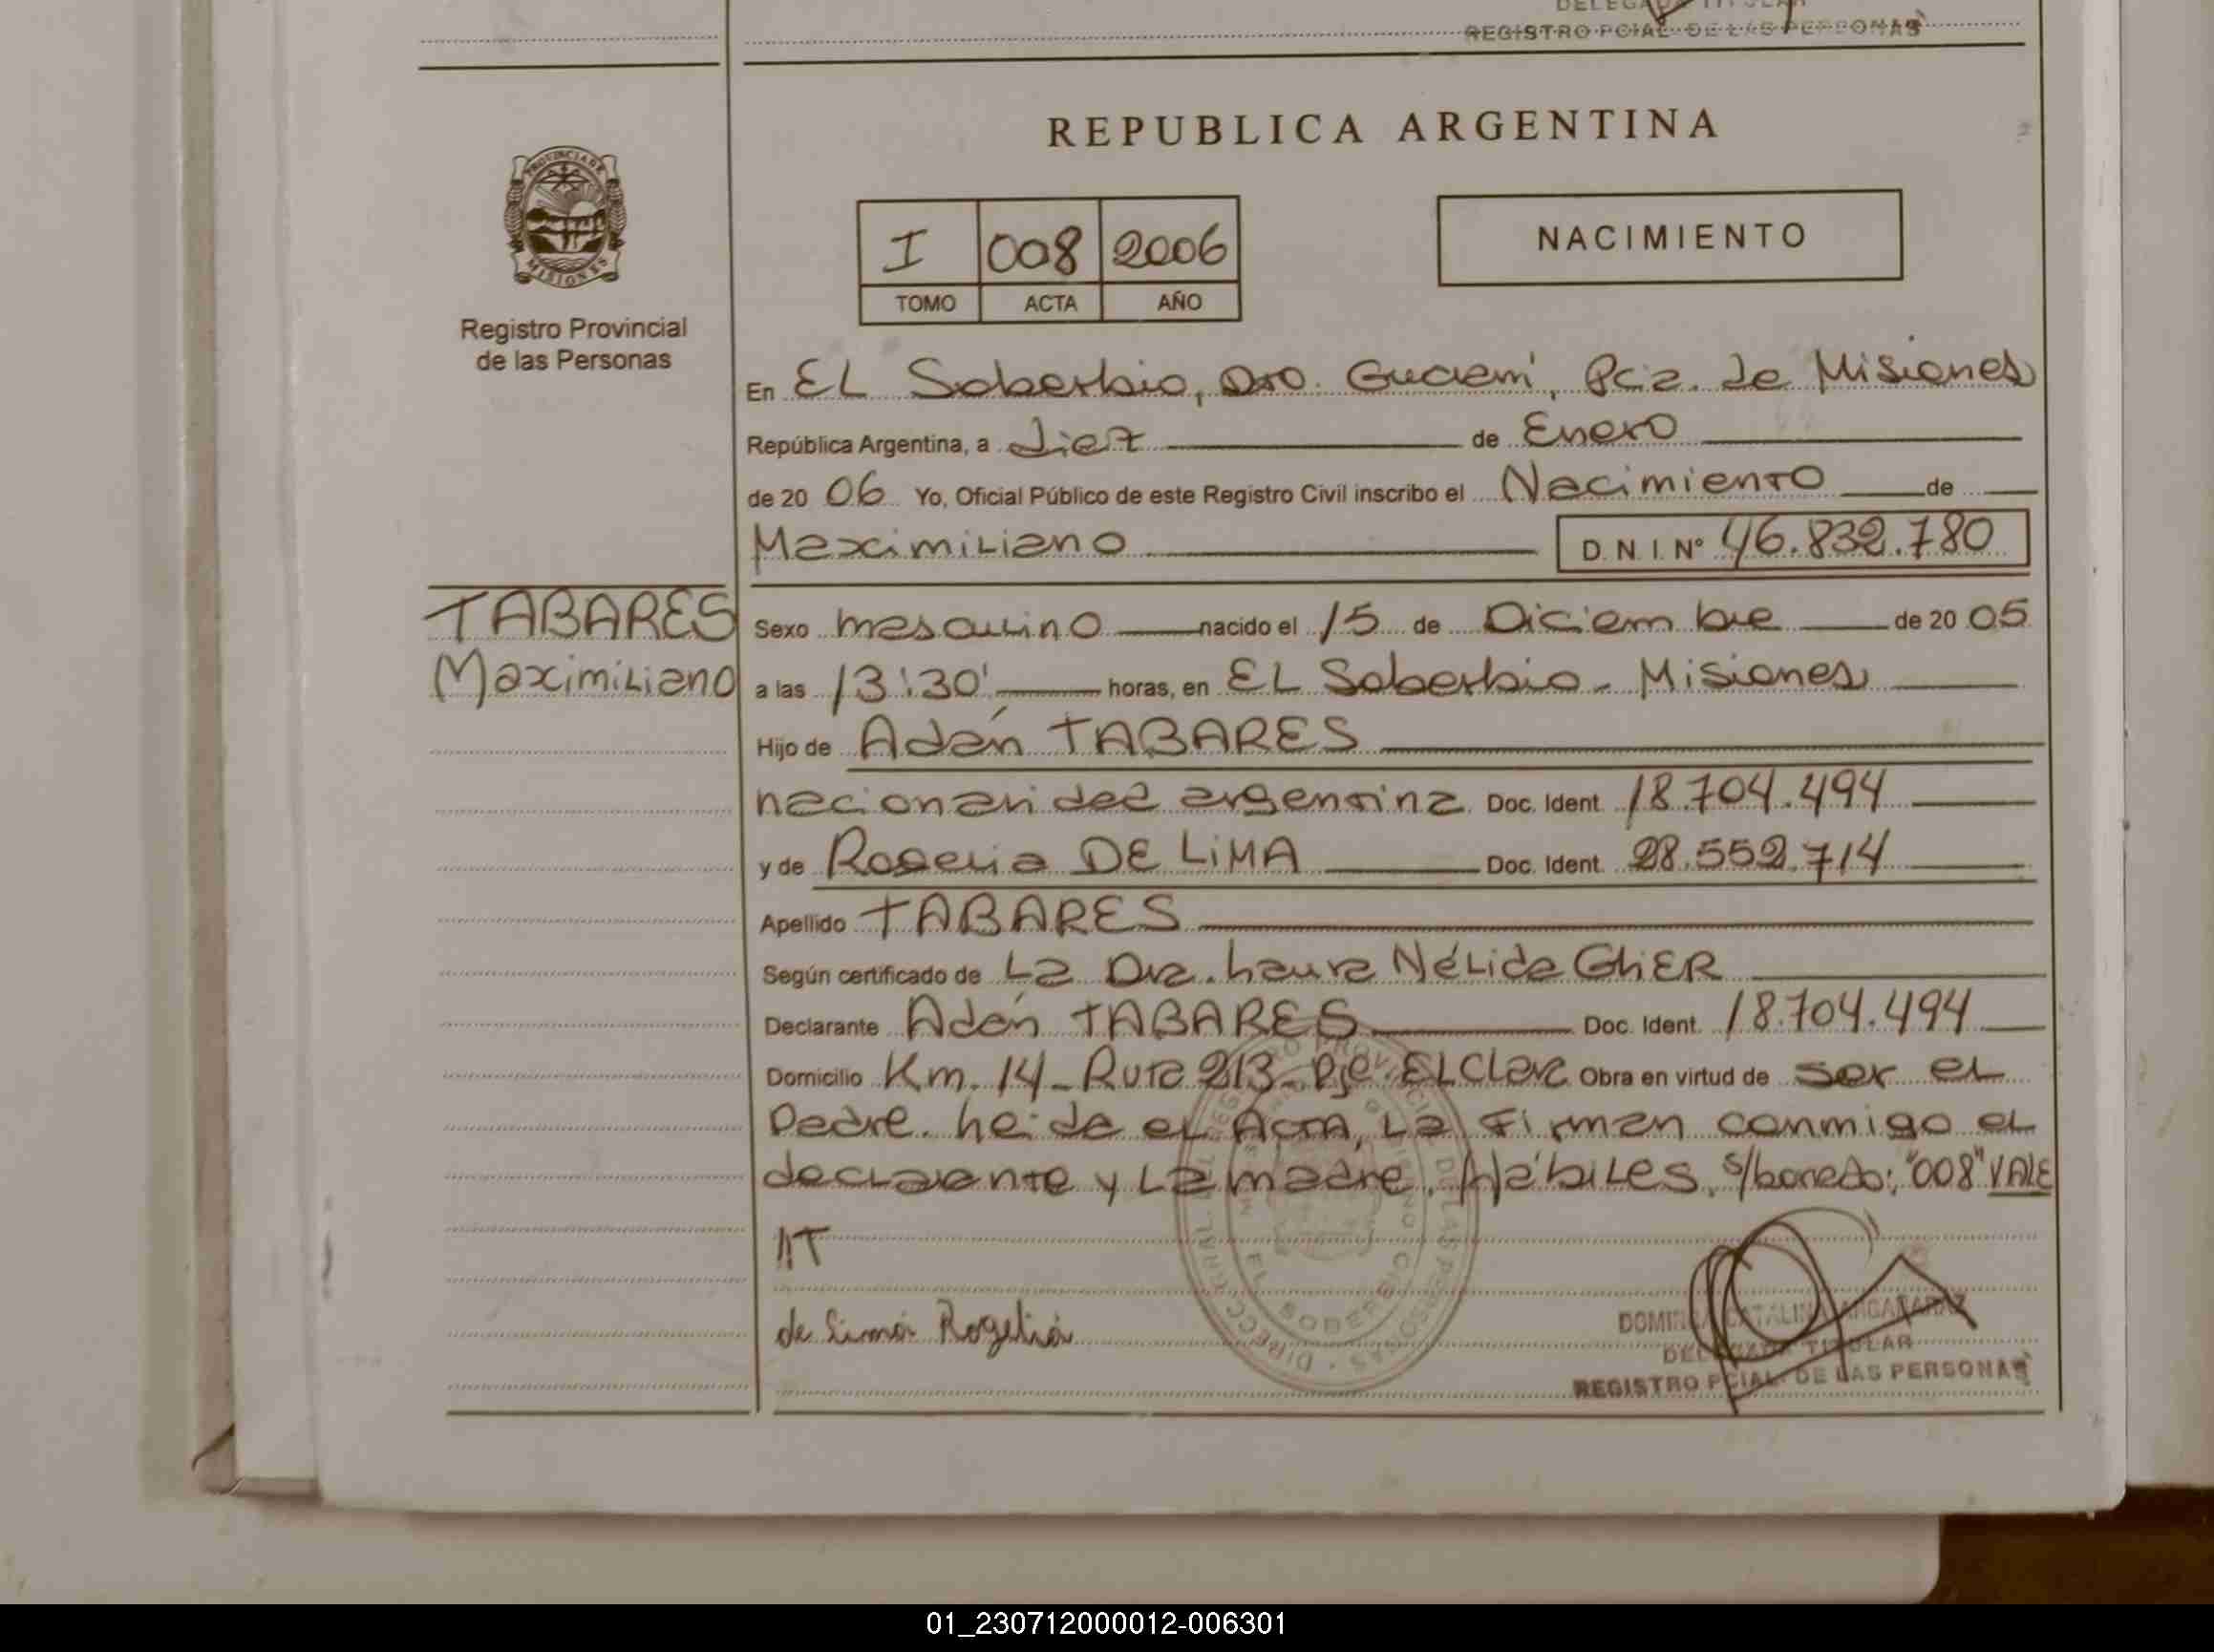 DELEGADA TITULAR
REGISTRO PCIAL. DE LAS PERSONAS
REPUBLICA ARGENTINA
PROVINCIA DE
MISIONES
Registro Provincial
de las Personas
I 008 2006
TOMO ACTA AÑO
NACIMIENTO
En EL Soberbio, Dto. Guaraní, Pcia. de Misiones
República Argentina, a diez de Enero
de 20 06 Yo, Oficial Público de este Registro Civil inscribo el Nacimiento de
Maximiliano D.N.I.N° 46.832.780
TABARES
Maximiliano
Sexo masculino nacido el 15 de Diciembre de 20 05
a las 13:30' horas, en EL Soberbio - Misiones
Hijo de Adán TABARES
nacionalidad argentina Doc. Ident. 18.704.494
y de Rogelia DE LiMA Doc. Ident. 28.552.714
Apellido TABARES
Según certificado de La Dra. Laura Nélida GhiER
Declarante Adán TABARES Doc. Ident. 18.704.494
Domicilio Km. 14 - Ruta 213 - Pje. EL Clara Obra en virtud de ser el
Padre. Leida el Acta, La Firman conmigo el
declarante y La madre. Hábiles. s/borrado: "008" VALE
AT
de Lima Rogelia
DIRECC. GRAL. DEL REGISTRO PROVINCIAL DE LAS PERSONAS
EL SOBERBIO
DOMINGA CATALINA ARGAÑARAZ
DELEGADA TITULAR
REGISTRO PCIAL. DE LAS PERSONAS
01_230712000012-006301